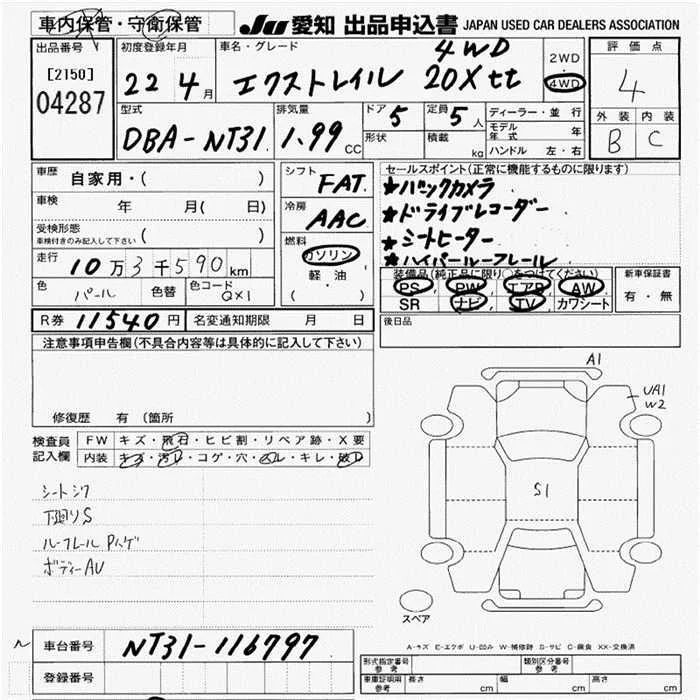 車内保管・守衛保管
JU 愛知 出品申込書 JAPAN USED CAR DEALERS ASSOCIATION
出品番号
[2150]
04287
初度登録年月
22 4月
車名・グレード
エクストレイル 20Xtt
4WD
2WD
・
4WD
評価点
4
外装 内装
B C
型式
DBA-NT31
排気量
1.99 CC
ドア 5
定員 5人
形状
積載 kg
ディーラー・並行
モデル年式 年
ハンドル 左・右
車歴 自家用・( )
車検 年 月( 日)
受検形態
車検付きのみ記入して下さい ( )
走行 10万3千590km
色 パール
色替
色コード QX1
シフト FAT
冷房 AAC
燃料
ガソリン
軽油
( ・ )
セールスポイント(正常に機能するものに限ります)
★バックカメラ
★ドライブレコーダー
★シートヒーター
★ハイパールーフレール
装備品(純正品に限り○をつけてください)
PS, PW, エアB, AW,
SR ナビ, TV, カワシート
新車保証書
有・無
後日品
R券 11540円
名変通知期限 月 日
注意事項申告欄(不具合内容等は具体的に記入して下さい)
修復歴 有 (箇所 )
検査員記入欄
FW キズ・飛石・ヒビ割・リペア跡・X要
内装 キズ・汚レ・コゲ・穴・スレ・キレ・破レ
シートシワ
下廻りS
ルーフレールPハゲ
ボディーAU
A1
UA1
W2
S1
スペア
A-キズ E-エクボ U-凹み W-補修跡 S-サビ C-腐食 XX-交換済
車台番号 NT31-116797
登録番号
形式指定番号 参考
類別区分番号 参考
車庫証明用 参考
長さ cm
幅 cm
高さ cm